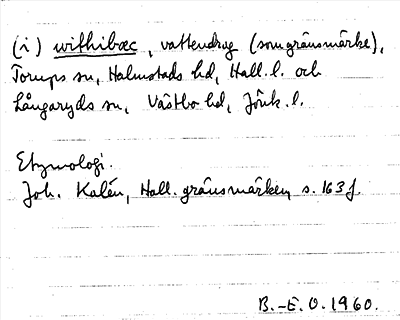 (i) withibæc, vattendrag (som gränsmärke),
Torups sn, Halmstads hd, Hall. l. och
Långaryds sn, Västbo hd, Jönk. l.
Etymologi.
Joh. Kalén, Hall. gränsmärken, s. 163 f.
B.-E. O. 1960.